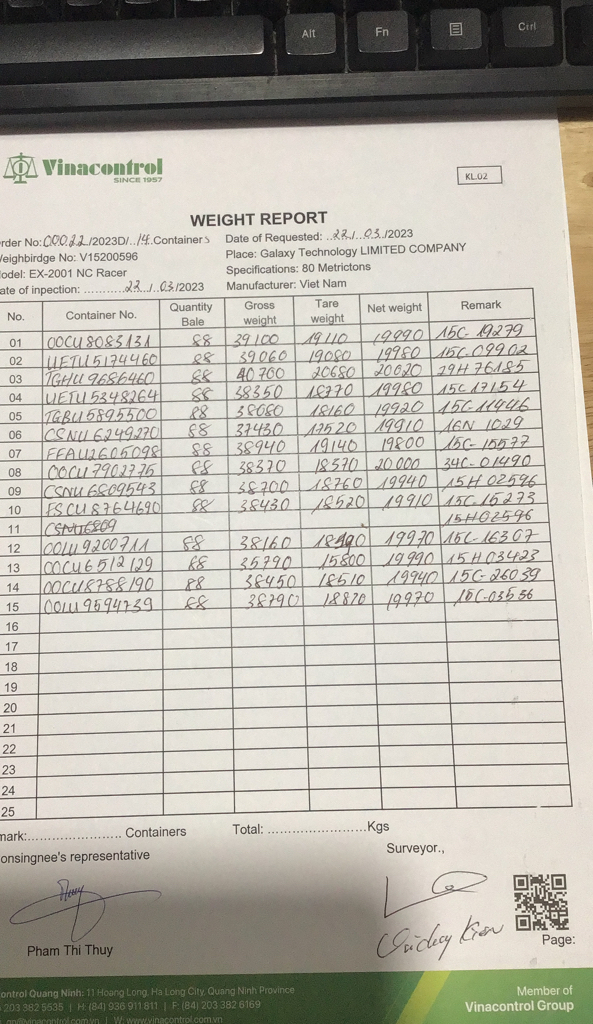 Alt
Fn
Ctrl
Vinacontrol
SINCE 1957
KL.02
WEIGHT REPORT
rder No: 00022/2023D/..14.Containers Date of Requested: ..22./..03./2023
Weighbirdge No: V15200596 Place: Galaxy Technology LIMITED COMPANY
odel: EX-2001 NC Racer Specifications: 80 Metrictons
ate of inpection: ...........22../..03/2023 Manufacturer: Viet Nam
No. Container No. Quantity Bale Gross weight Tare weight Net weight Remark
01 OOCU8083131 88 39100 19110 19990 15C-19279
02 UETU5174460 88 39060 19080 19980 15C-09902
03 TGHU9686460 88 40700 20680 20020 29H 76185
04 UETU5348264 88 38350 18370 19980 15C-17154
05 TGBU5895500 88 38080 18160 19920 15C-11446
06 CSNU6249270 88 37430 17520 19910 16N 1029
07 FFAU2605098 88 38940 19140 19800 15C-15577
08 OOCU7902775 88 38370 18370 20000 34C-01490
09 CSNU6809543 88 38700 18760 19940 15H 02596
10 FSCU8764690 88 38430 18520 19910 15C-15273
11 CSNU6809 15H02596
12 OOLU9200711 88 38160 19970 15C-16307
13 OOCU6512129 88 35790 15800 19990 15H03423
14 OOCU8788190 88 38450 18510 19940 15C-26039
15 OOLU9594739 88 38790 18820 19970 15C-03556
16
17
18
19
20
21
22
23
24
25
mark:...................... Containers Total: ........................Kgs
onsingnee's representative Surveyor.,
Pham Thi Thuy
Page:
ontrol Quang Ninh: 11 Hoang Long, Ha Long City, Quang Ninh Province
203 382 5535 | H: (84) 936 911 811 | F: (84) 203 382 6169
qn@vinacontrol.com.vn | W: www.vinacontrol.com.vn
Member of
Vinacontrol Group